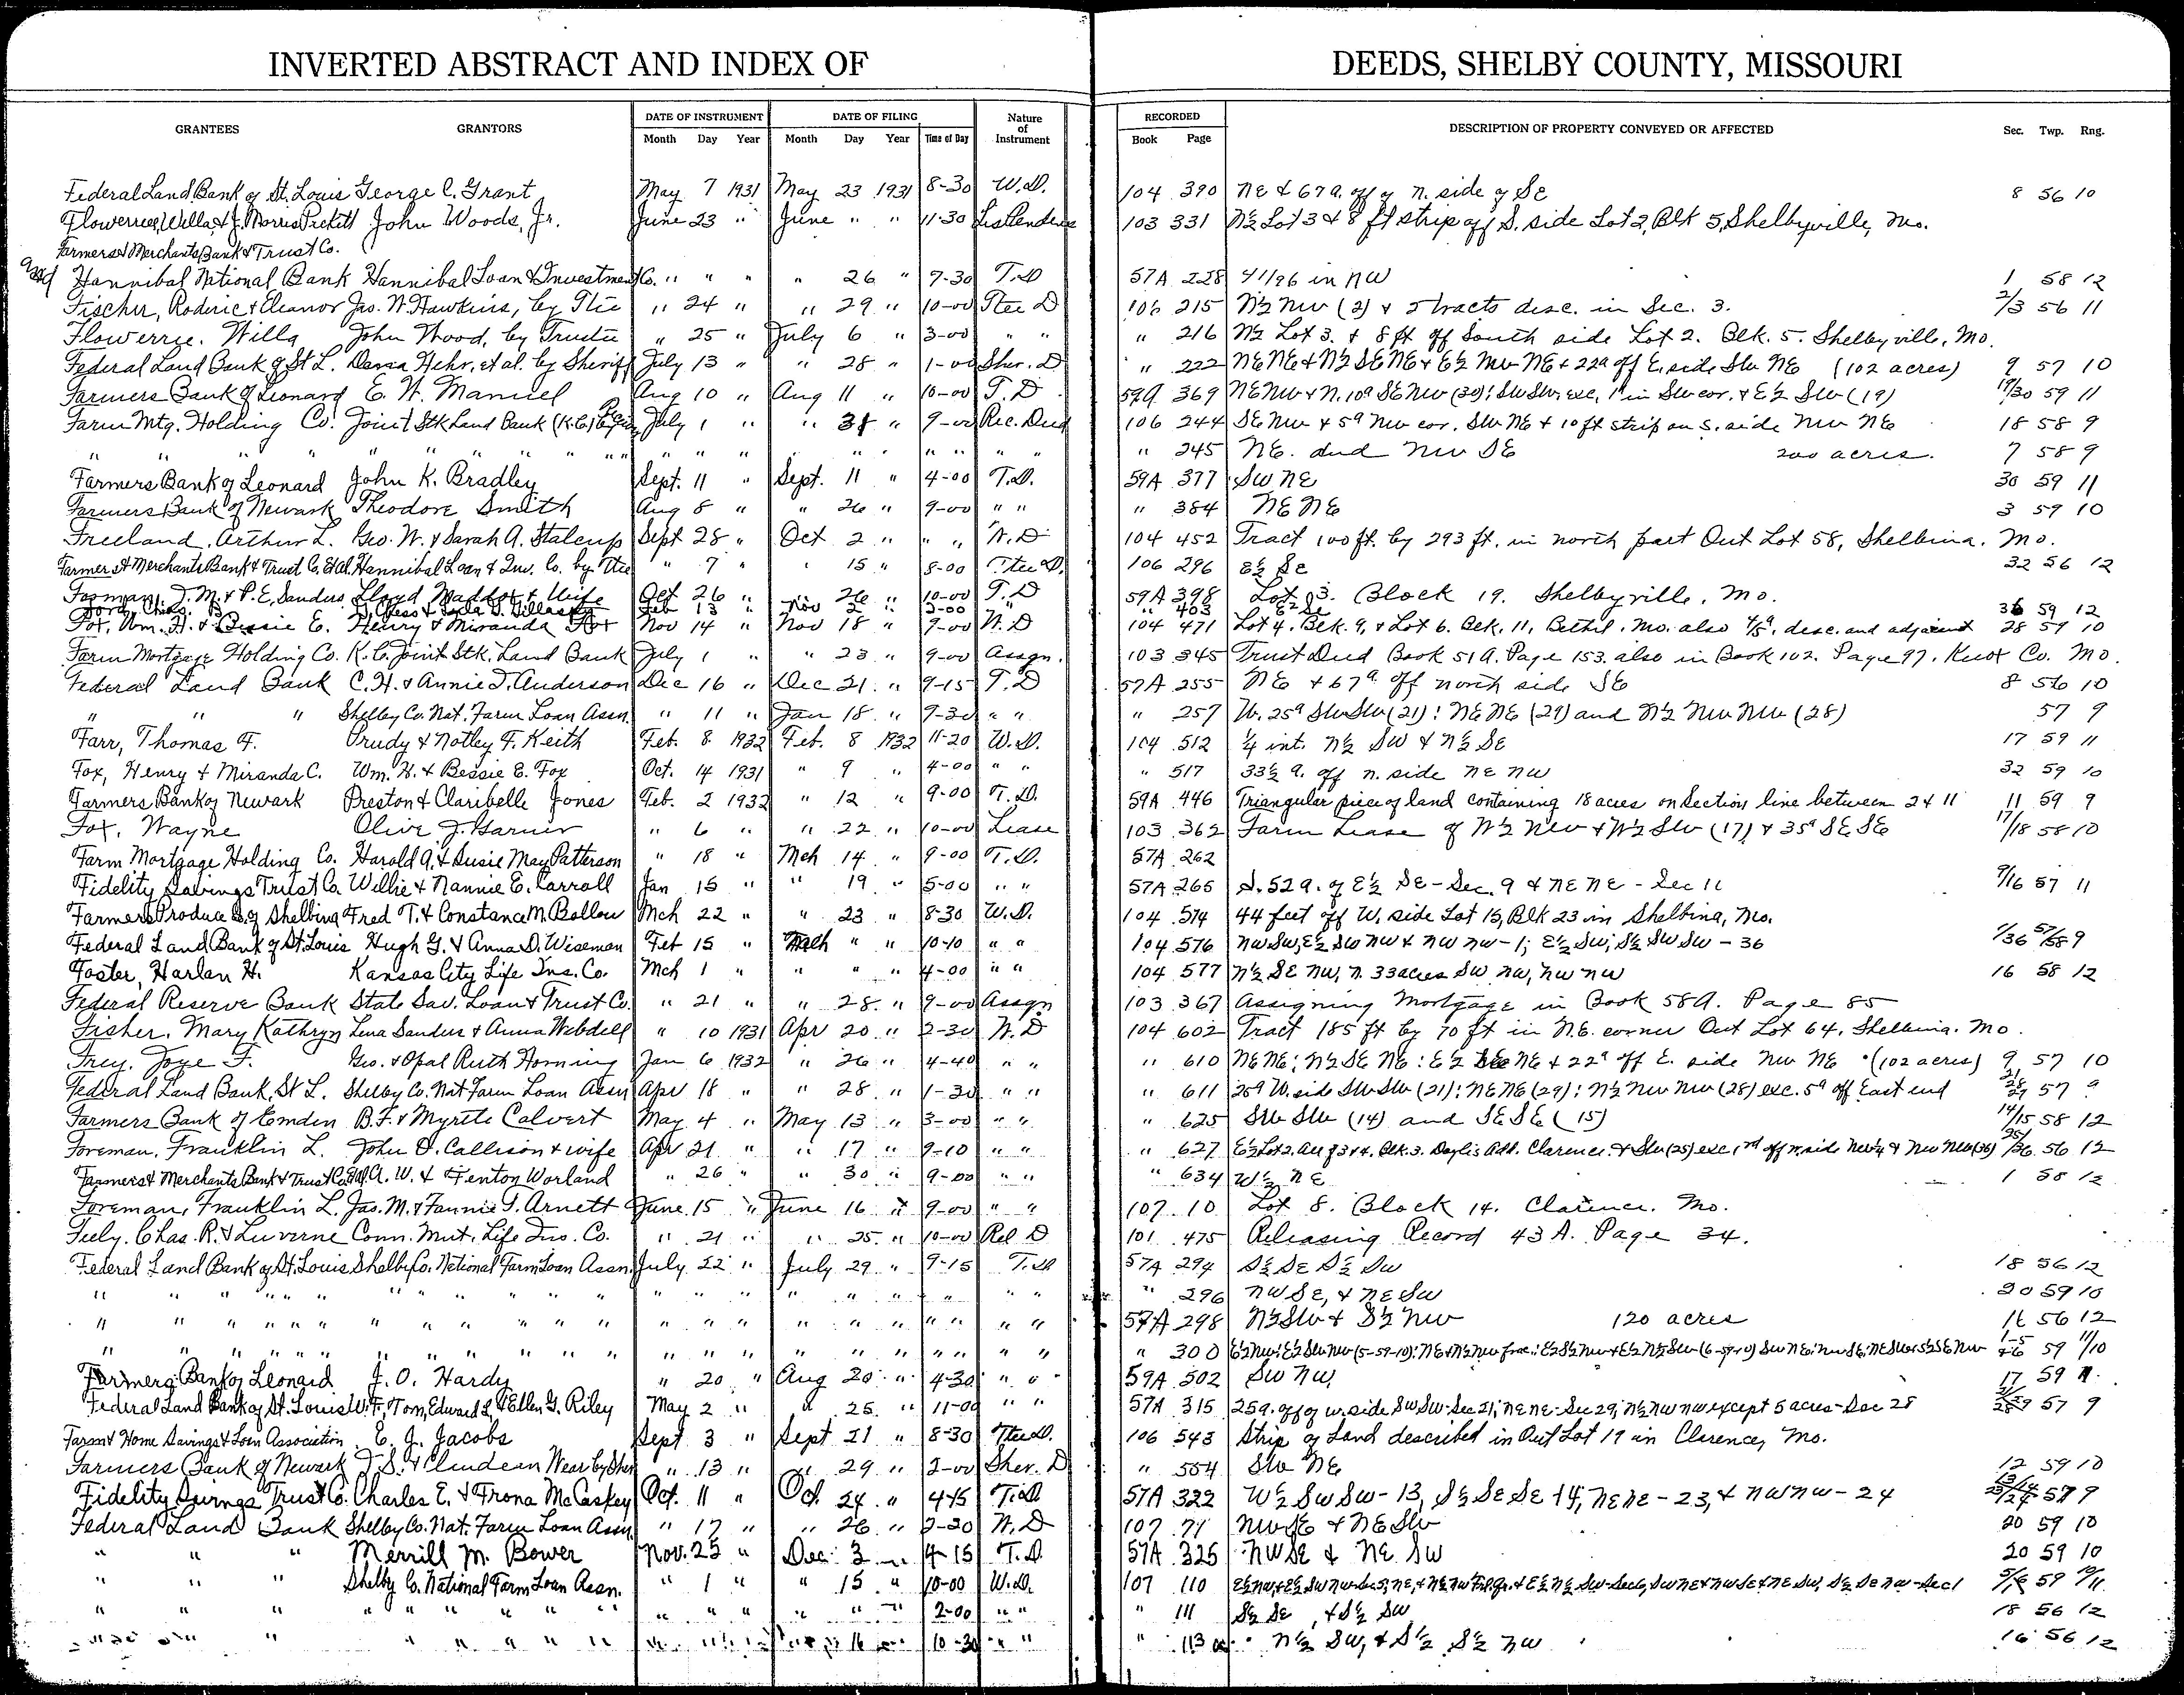 INVERTED ABSTRACT AND INDEX OF DEEDS, SHELBY COUNTY, MISSOURI
GRANTEES GRANTORS DATE OF INSTRUMENT DATE OF FILING Nature of Instrument RECORDED DESCRIPTION OF PROPERTY CONVEYED OR AFFECTED Sec. Twp. Rng.
Month Day Year Month Day Year Time of Day Book Page
Federal Land Bank of St. Louis George C. Grant May 7 1931 May 23 1931 8-30 W.D. 104 390 NE & 67 a. off of N. side of SE 8 56 10
Flowerree, Willa & J. Morris Pickett John Woods, Jr. June 23 " June " " 11-30 Lis Pendens 103 331 N½ Lot 3 & 8 ft strip off S. side Lot 2, Blk 5, Shelbyville, Mo.
Farmers & Merchants Bank & Trust Co.
and Hannibal National Bank Hannibal Loan & Investment Co. " " " " 26 " 7-30 T.D 57A 228 41/96 in NW 1 58 12
Fischer, Roderic & Eleanor Jas. W. Hawkins, by Ttee " 24 " " 29 " 10-00 Ttee D 106 215 N½ NW (2) & 5 tracts desc. in Sec. 3. 2/3 56 11
Flowerree. Willa John Wood, by Trustee " 25 " July 6 " 3-00 " " " 216 N½ Lot 3. & 8 ft off South side Lot 2. Blk. 5. Shelbyville, Mo.
Federal Land Bank of St L. Hehr, et al. by Sheriff July 13 " " 28 " 1-00 Sher. D " 222 NE NE & N½ SE NE & E½ NW NE & 22a off E. side SW NE (102 acres) 9 57 10
Farmers Bank of Leonard E. W. Manuel Aug 10 " Aug 11 " 10-00 T.D 59A 369 NE NW & N. 10a SE NW (30); SW SW exc. 1a in SW cor. & E½ SW (19) 19/30 59 11
Farm Mtg. Holding Co. Joint Stk Land Bank (K.C.) July 1 " " 31 " 9-00 Rec. Deed 106 244 SE NW & 5a NW cor. SW NE & 10 ft strip on S. side NW NE 18 58 9
" " " " " " " " " " " " " " " " " " 245 NE. and NW SE 200 acres. 7 58 9
Farmers Bank of Leonard John K. Bradley Sept. 11 " Sept. 11 " 4-00 T.D. 59A 377 SW NE 30 59 11
Farmers Bank of Newark Theodore Smith Aug 8 " " 26 " 9-00 " " " 384 NE NE 3 59 10
Freeland, Arthur L. Geo. W. & Sarah A. Stalcup Sept 28 " Oct 2 " " " W.D 104 452 Tract 100 ft. by 293 ft. in north part Out Lot 58, Shelbina. Mo.
Farmers & Merchants Bank & Trust Co. Et al. Hannibal Loan & Inv. Co. by Ttee " 7 " " 15 " 8-00 Ttee D. 106 296 E½ SE 32 56 12
Forman, J. M. & P. E. Sanders Lloyd Maddox & Wife Oct 26 " " 26 " 10-00 T.D 59A 398 Lot 3. Block 19. Shelbyville, Mo.
Ford, Chas. B. Chess & Gillaspy Feb 13 " Nov 2 " 2-00 " " 403 E½ SE 36 59 12
Fox, Wm. H. & Bessie E. Henry & Miranda Fox Nov 14 " Nov 18 " 9-00 W.D 104 471 Lot 4. Blk. 9, & Lot 6. Blk. 11, Bethel. Mo. also 4/5a. desc. and adjacent 28 59 10
Farm Mortgage Holding Co. K.C. Joint Stk. Land Bank July 1 " " 23 " 9-00 Assgn. 103 345 Trust Deed Book 51A. Page 153. also in Book 102. Page 97. Knox Co. Mo.
Federal Land Bank C. H. & Annie T. Anderson Dec 16 " Dec 21 " 9-15 T.D 57A 255 NE & 67a off north side SE 8 56 10
" " " Shelby Co. Nat. Farm Loan Assn. " 11 " Jan 18 " 9-30 " " " 257 W. 25a SW SW (21); NE NE (29) and N½ NW NW (28) 57 9
Farr, Thomas F. Prudy & Notley F. Keith Feb. 8 1932 Feb. 8 1932 11-20 W.D. 104 512 ¼ int. N½ SW & N½ SE 17 59 11
Fox, Henry & Miranda C. Wm. H. & Bessie E. Fox Oct. 14 1931 " 9 " 4-00 " " " 517 33½ a. off N. side NE NW 32 59 10
Farmers Bank of Newark Preston & Claribelle Jones Feb. 2 1932 " 12 " 9-00 T.D. 59A 446 Triangular piece of land containing 18 acres on Section line between 2 & 11 11 59 9
Fox, Wayne Olive J. Garner " 6 " " 22 " 10-00 Lease 103 362 Farm Lease of W½ NW & W½ SW (17) & 35a SE SE 17/18 58 10
Farm Mortgage Holding Co. Harold A. & Susie May Patterson " 18 " Mch 14 " 9-00 T.D. 57A 262
Fidelity Savings Trust Co. Willie & Nannie E. Carroll Jan 15 " " 19 " 5-00 " " 57A 265 S. 52 a. of E½ SE - Sec. 9 & NE NE - Sec 16 9/16 57 11
Farmers Produce Co. of Shelbina Fred T. & Constance M. Bollow Mch 22 " " 23 " 8-30 W.D. 104 574 44 feet off W. side Lot 15, Blk 23 in Shelbina, Mo.
Federal Land Bank of St. Louis Hugh G. & Anna D. Wiseman Feb 15 " Mch " " 10-10 " " 104 576 NW SW, E½ SW NW & NW NW - 1; E½ SW; S½ SW SW - 36 1/36 57/58 9
Foster, Harlan H. Kansas City Life Ins. Co. Mch 1 " " " " 4-00 " " 104 577 N½ SE NW, N. 33 acres SW NW, NW NW 16 58 12
Federal Reserve Bank State Sav. Loan & Trust Co. " 21 " " 28 " 9-00 Assgn 103 367 Assigning Mortgage in Book 58A. Page 85
Fisher, Mary Kathryn Lena Sanders & Anna Webdell " 10 1931 Apr 20 " 2-30 W.D 104 602 Tract 185 ft by 70 ft in N.E. corner Out Lot 64, Shelbina. Mo.
Frey, Joye F. Geo. & Opal Ruth Horning Jan 6 1932 " 26 " 4-40 " " " 610 NE NE; N½ SE NE; E½ NE & 22a off E. side NW NE (102 acres) 9 57 10
Federal Land Bank, St L. Shelby Co. Nat Farm Loan Assn Apr 18 " " 28 " 1-30 " " " 611 25a W. side SW SW (21); NE NE (29); N½ NW NW (28) exc. 5a off East end 57 9
Farmers Bank of Emden B.F. & Myrtle Calvert May 4 " May 13 " 3-00 " " " 625 SW SW (14) and SE SE (15) 14/15 58 12
Foreman, Franklin L. John O. Callison & wife Apr 21 " " 17 " 9-10 " " " 627 E½ Lot 2. All of 3 & 4. Blk. 3. Add. Clarence. & SW (25) exc. off N. side NW¼ & NW NW (36) 25/36 56 12
Farmers & Merchants Bank & Trust Co. Et al. A. W. & Fenton Worland " 26 " " 30 " 9-00 " " " 634 W½ NE 1 58 12
Foreman, Franklin L. Jas. M. & Fannie T. Arnett June 15 " June 16 " 9-00 " " 107 10 Lot 8. Block 14. Clarence. Mo.
Feely, Chas. R. & Luverne Conn. Mut. Life Ins. Co. " 21 " " 25 " 10-00 Rel D 101 475 Releasing Record 43A. Page 34.
Federal Land Bank of St. Louis Shelby Co. National Farm Loan Assn. July 22 " July 29 " 9-15 T.D 57A 294 S½ SE S½ SW 18 56 12
" " " " " " " " " " " " " " " " " " " " 296 NW SE, & NE SW 20 59 10
" " " " " " " " " " " " " " " " " " " 57A 298 N½ SW & S½ NW 120 acres 16 56 12
" " " " " " " " " " " " " " " " " " " " 300 59 11/10
Farmers Bank of Leonard J. O. Hardy " 20 " Aug 20 " 4-30 " " 59A 502 SW NW 17 59 11
Federal Land Bank of St. Louis W. F., Tom, Edward L. & Ellen G. Riley May 2 " " 25 " 11-00 " " 57A 315 25a. off of W. side SW SW - Sec 21; NE NE - Sec 29; N½ NW NW except 5 acres - Sec 28 57 9
Farm & Home Savings & Loan Association E. J. Jacobs Sept 3 " Sept 21 " 8-30 Ttee D. 106 543 Strip of Land described in Out Lot 19 in Clarence, Mo.
Farmers Bank of Newark J. S. & Wear by Sher " 13 " " 29 " 2-00 Sher. D " 554 SW NE 12 59 10
Fidelity Savings Trust Co. Charles E. & Frona McCaskey Oct. 11 " Oct. 24 " 4-15 T.D 57A 322 W½ SW SW - 13, S½ SE SE 14, NE NE - 23, & NW NW - 24 57 9
Federal Land Bank Shelby Co. Nat. Farm Loan Assn. " 17 " " 26 " 2-20 W.D 107 71 NW SE & NE SW 20 59 10
" " " Merrill M. Bower Nov. 25 " Dec. 3 " 4-15 T.D. 57A 325 NW SE & NE SW 20 59 10
" " " Shelby Co. National Farm Loan Assn. " 1 " " 15 " 10-00 W.D. 107 110 59
" " " " " " " " " " " " " " 2-00 " " " 111 S½ SE, & S½ SW 18 56 12
" " " " " " " " " " " 16 " 10-30 " " " 113 N½ SW, & S½ S½ NW 16 56 12